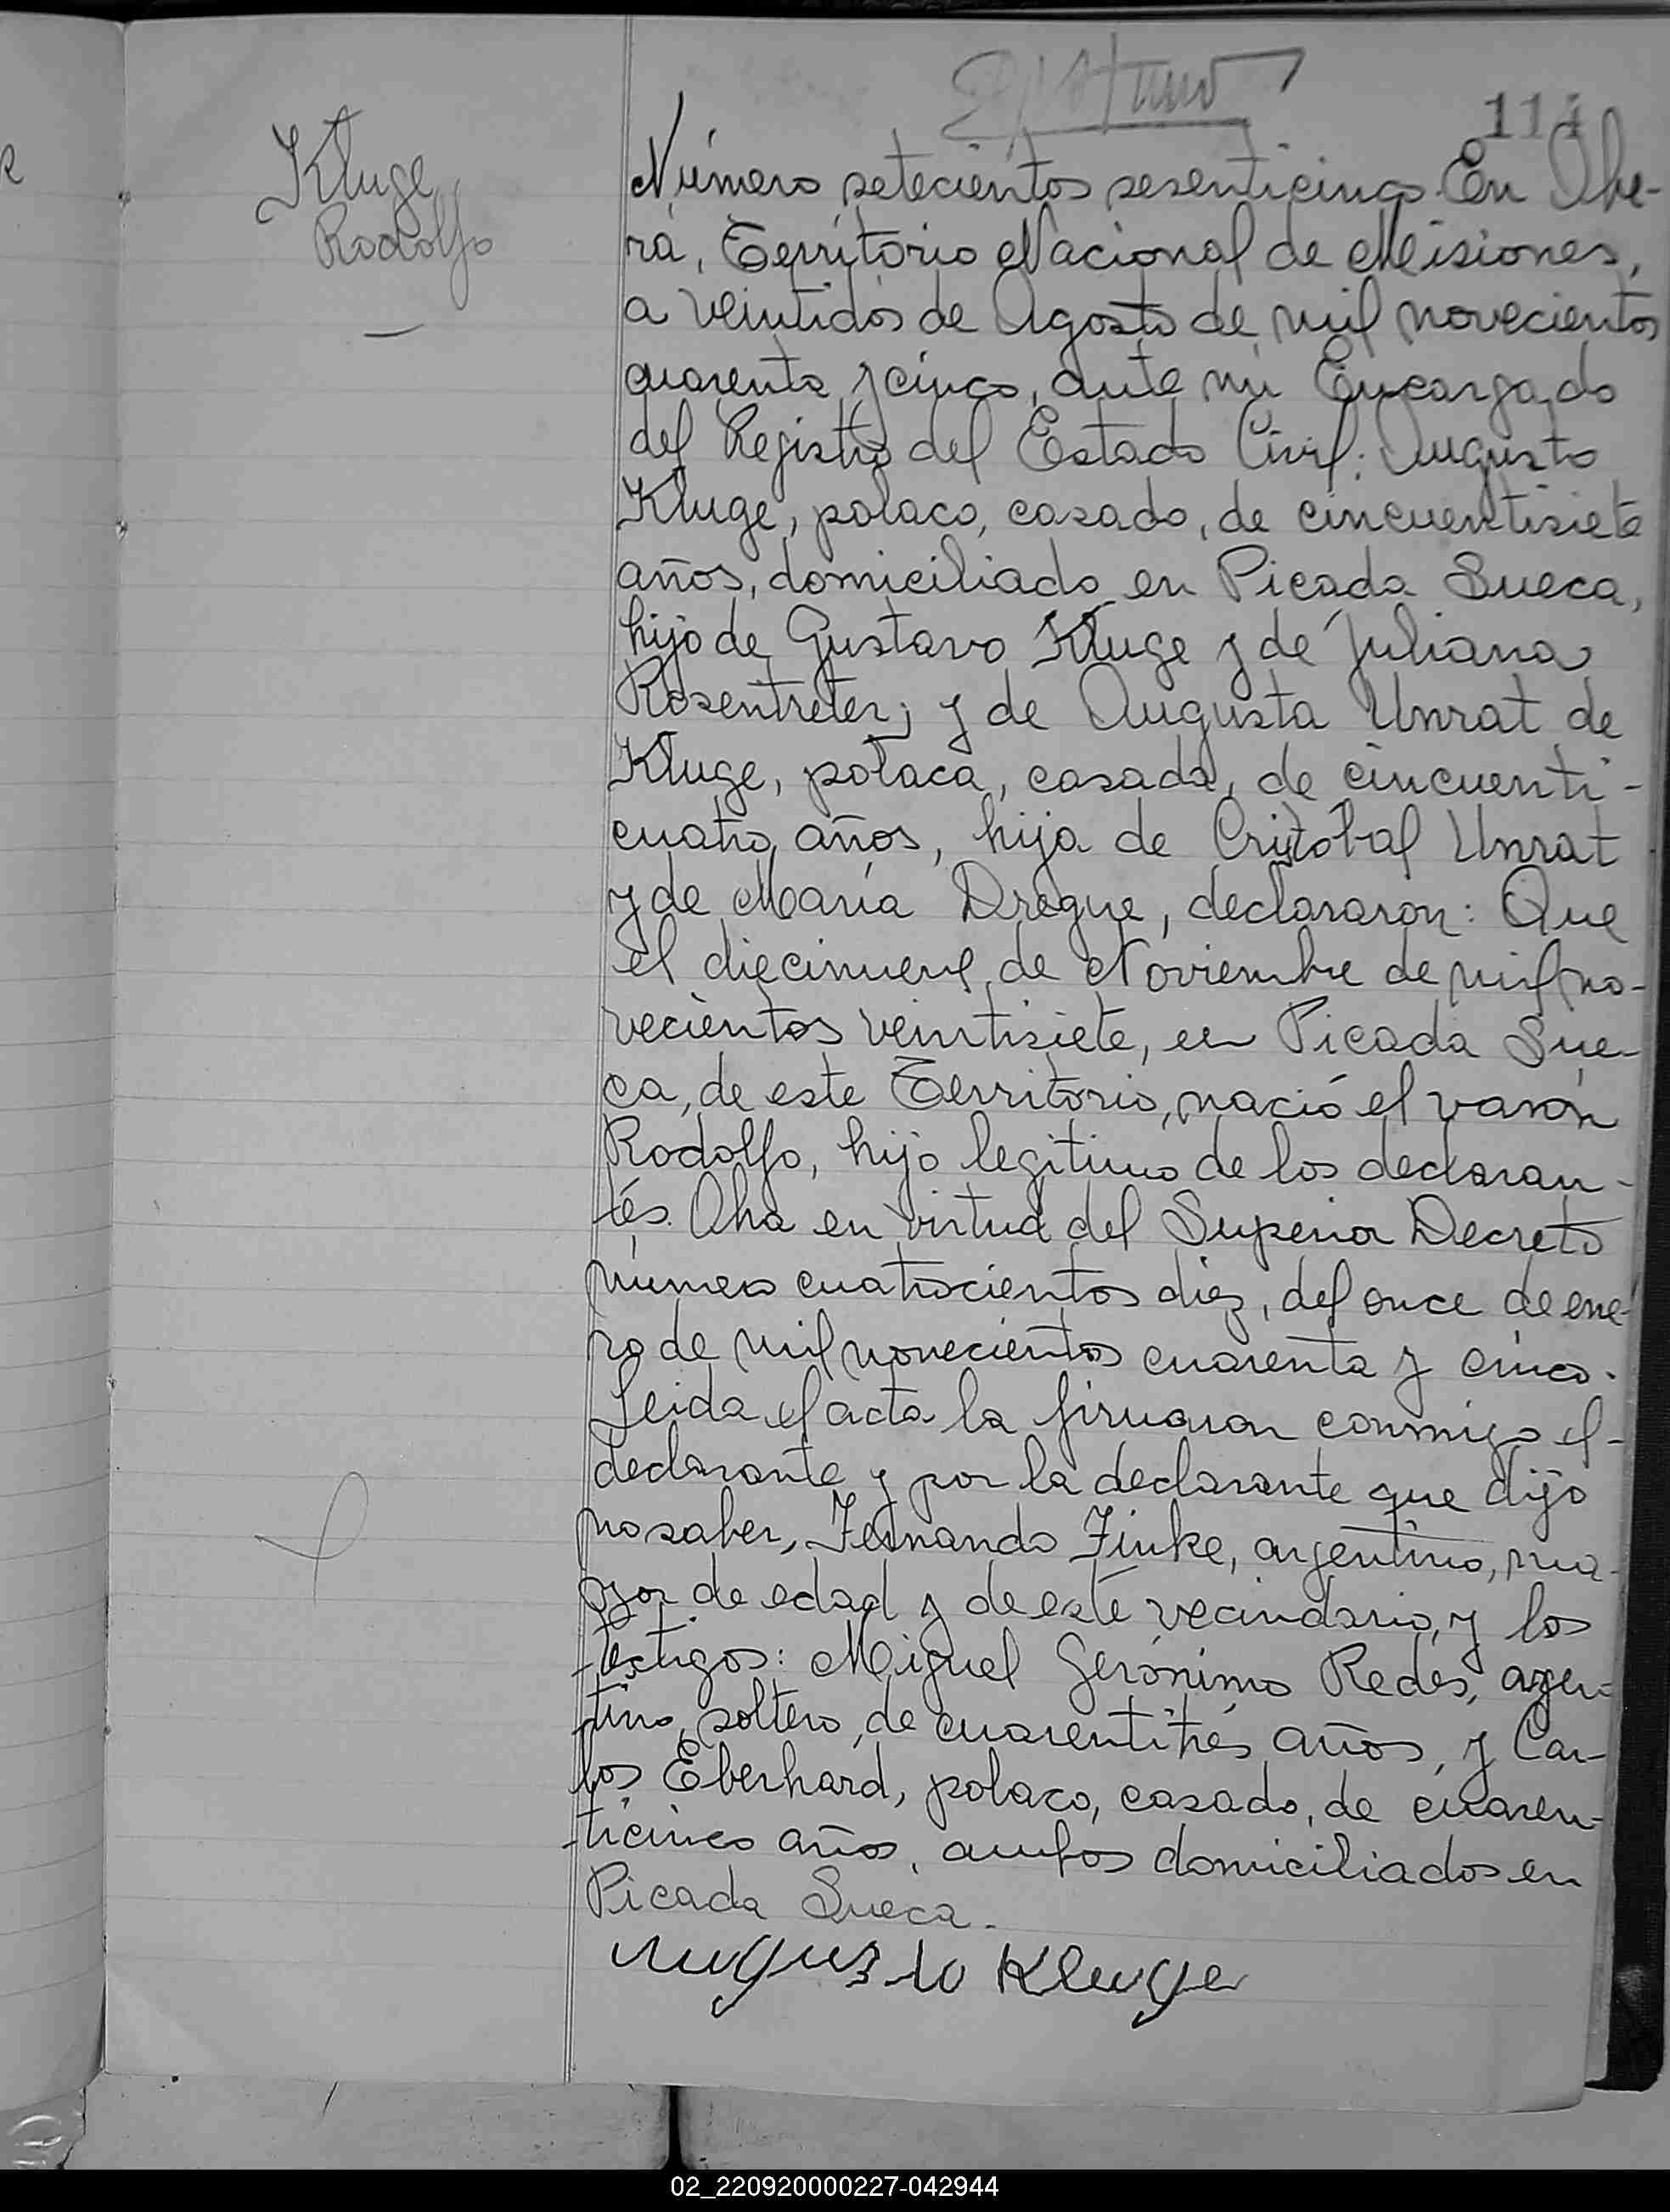 114
Kluge
Rodolfo
Número setecientos sesenticinco. En Obe-
rá, Territorio Nacional de Misiones,
a veintidós de Agosto de mil novecientos
cuarenta y cinco, ante mi Encargado
del Registro del Estado Civil: Augusto
Kluge, polaco, casado, de cincuentisiete
años, domiciliado en Picada Sueca,
hijo de Gustavo Kluge y de Juliana
Rosentreter; y de Augusta Unrat de
Kluge, polaca, casada, de cincuenti-
cuatro años, hija de Cristóbal Unrat
y de María Dregue, declararon: Que
el diecinueve de Noviembre de mil no-
vecientos veintisiete, en Picada Sue-
ca, de este Territorio, nació el varón
Rodolfo, hijo legitimo de los declaran-
tes. Oha en virtud del Superior Decreto
número cuatrocientos diez, del once de ene-
ro de mil novecientos cuarenta y cinco.
Leida el acta la firmaron conmigo el
declarante y por la declarante que dijo
no saber, Fernando Finke, argentino, ma-
yor de edad y de este vecindario, y los
testigos: Miguel Gerónimo Redes, argen-
tino, soltero, de cuarentitrés años, y Car-
los Eberhard, polaco, casado, de cuaren-
ticinco años, ambos domiciliados en
Picada Sueca.
Augusto Kluge
02_220920000227-042944